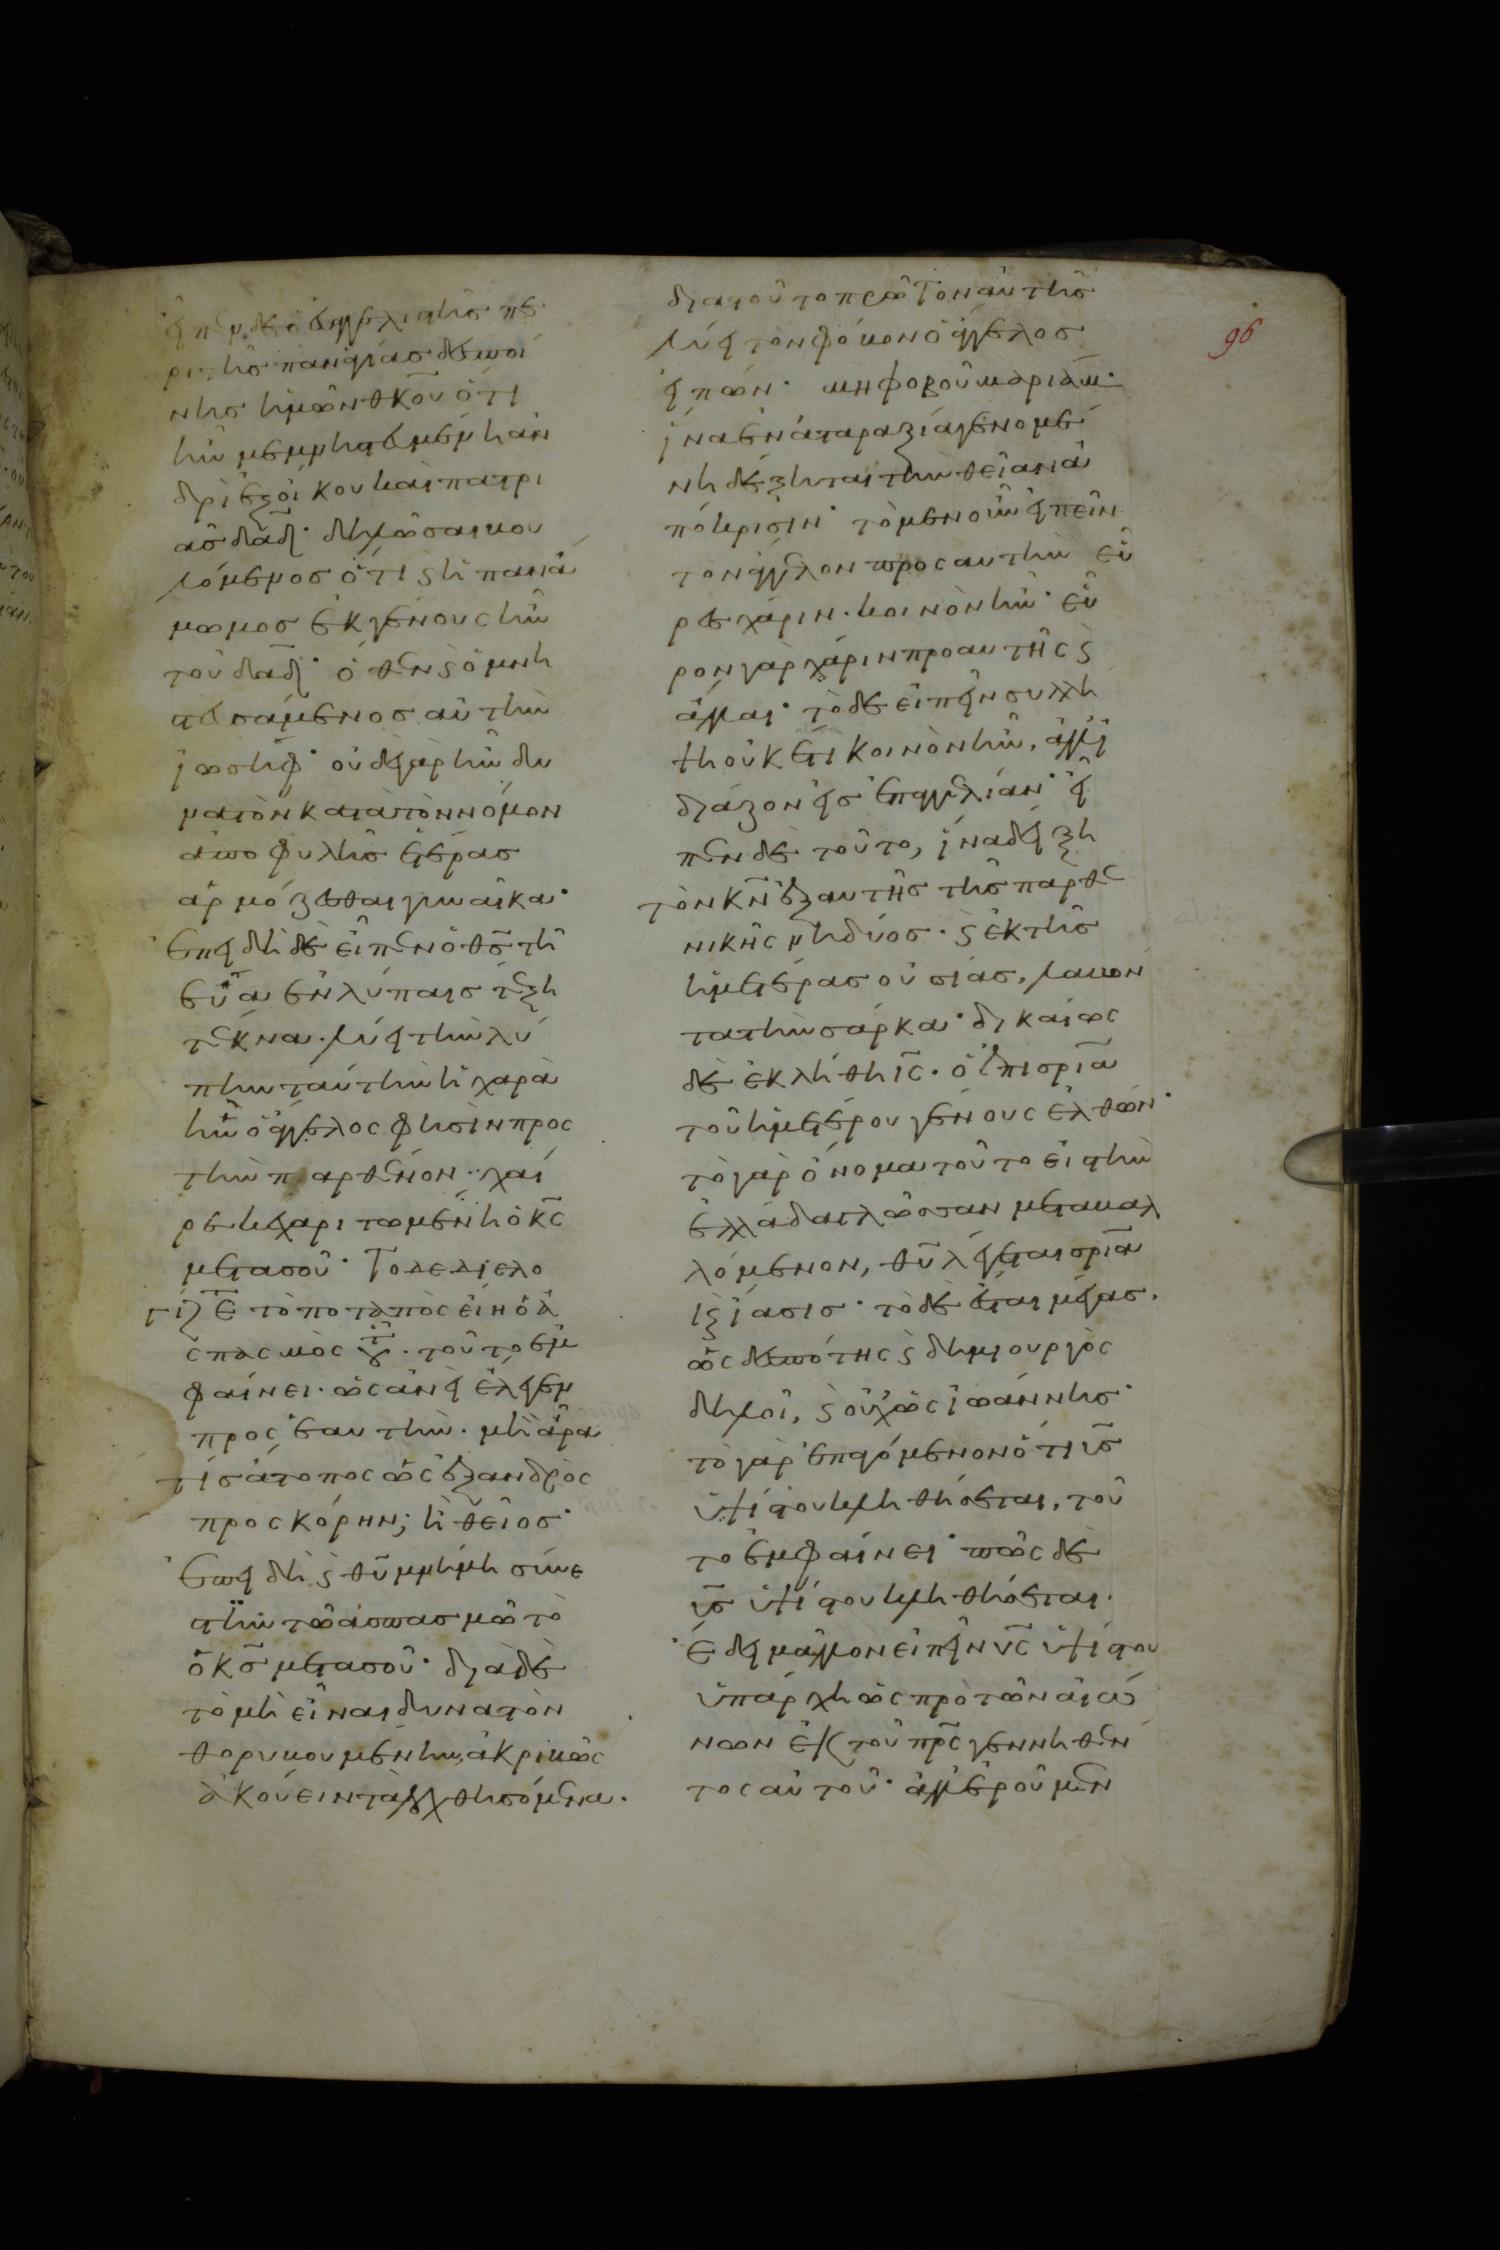 εἶπεν δὲ ὁ εὐαγγελιστὴς πε
ρὶ τῆς παναγίας δεσποί
νης ἡμῶν θκου ὅτι
ἦν μεμνηστευμένη ἀν
δρὶ ἐξ οἴκου καὶ πατρι
ᾶς δαδ· δηλῶσαι βου
λόμενος ὅτι καὶ ἡ πανά
μωμος ἐκ γένους ἦν
τοῦ δαδ· ὅθεν καὶ ὁ μνη
στευσάμενος αὐτὴν
ἰωσήφ· οὐδὲ γὰρ ἦν δυ
νατὸν κατὰ τὸν νόμον
ἀπὸ φυλῆς ἑτέρας
ἁρμόζεσθαι γυναῖκα·
ἐπειδὴ δὲ εἶπεν ὁ θς τῆ
εὔα ἐν λύπαις τέξη
τέκνα· λύει τὴν λύ
πην ταύτην ἡ χαρὰ
ἣν ὁ ἄγγελος φησὶν πρὸς
τὴν παρθένον· χαῖ
ρε κεχαριτωμένη ὁ κς
μετὰ σοῦ· Το δε διελο
γίζετο ποταπὸς εἴη ὁ ἀ
σπασμὸς οὗτος· τοῦτο ἐμ
φαίνει· ὡς ἂν εἰ ἔλεγεν
πρὸς ἑαυτήν· μὴ ἄρα
τίς ἄτοπος ὡς ἐξ ἀνδρὸς
πρὸς κόρην; ἢ θεῖος·
ἐπειδὴ καὶ θυ μνήμη συνε
στὴν τῶ ἀσπασμῶ τὸ
ὁ κς μετὰ σοῦ· διὰ δὲ
τὸ μὴ εἶναι δυνατὸν
θορυβουμένην, ἀκριβῶς
ἀκούειν τὰ λεχθησόμενα·
διὰ τοῦτο πρῶτον αὐτῆς
λύει τὸν φόβον ὁ ἄγγελος
εἰπών· μὴ φοβοῦ μαριάμ·
ἵνα ἐν ἀταραξία γενομέ
νη δέξηται τὴν θείαν ἀ
πόκρισιν· τὸ μὲν οὖν εἰπεῖν
τὸν ἄγγελον πρὸς αὐτὴν εὗ
ρες χάριν· κοινὸν ἦν· εὗ
ρον γὰρ χάριν πρὸ αὐτῆς καὶ
ἄλλαι· τὸ δὲ εἰπεῖν συλλή
ψη οὐκέτι κοινὸν ἦν, ἀλλ' ἰ
διάζον εἰς ἐπαγγελίαν· εἶ
πεν δὲ τοῦτο, ἵνα δείξη
τὸν κν ἐξ αὐτῆς τῆς παρθε
νικῆς νηδύος· καὶ ἐκ τῆς
ἡμετέρας οὐσίας, λαβόν
τα τὴν σάρκα· δικαίως
δὲ ἐκλήθη ις· ὁ ἐπὶ σρία
τοῦ ἡμετέρου γένους ἐλθών·
τὸ γὰρ ὄνομα τοῦτο εἰς τὴν
ἑλλάδα γλῶσσαν μεταβαλ
λόμενον, θυ λέγεται σρία
καὶ ἴασις· τὸ δὲ ἔσται μέγας·
ὡς δεσπότης καὶ δημιουργὸς
δηλοῖ, καὶ οὐχ ὡς ἰωάννης·
τὸ γὰρ ἐπαγόμενον ὅτι υς
ὑψίστου κληθήσεται, τοῦ
το ἐμφαίνει· πῶς δὲ
υς ὑψίστου κληθήσεται·
ἔδει μᾶλλον εἰπεῖν υς ὑψίστου
ὑπάρχη ὡς πρὸ τῶν αἰώ
νων ἐκ τοῦ πρς γεννηθέν
τος αὐτοῦ· ἀλλ' ἐροῦμεν
96